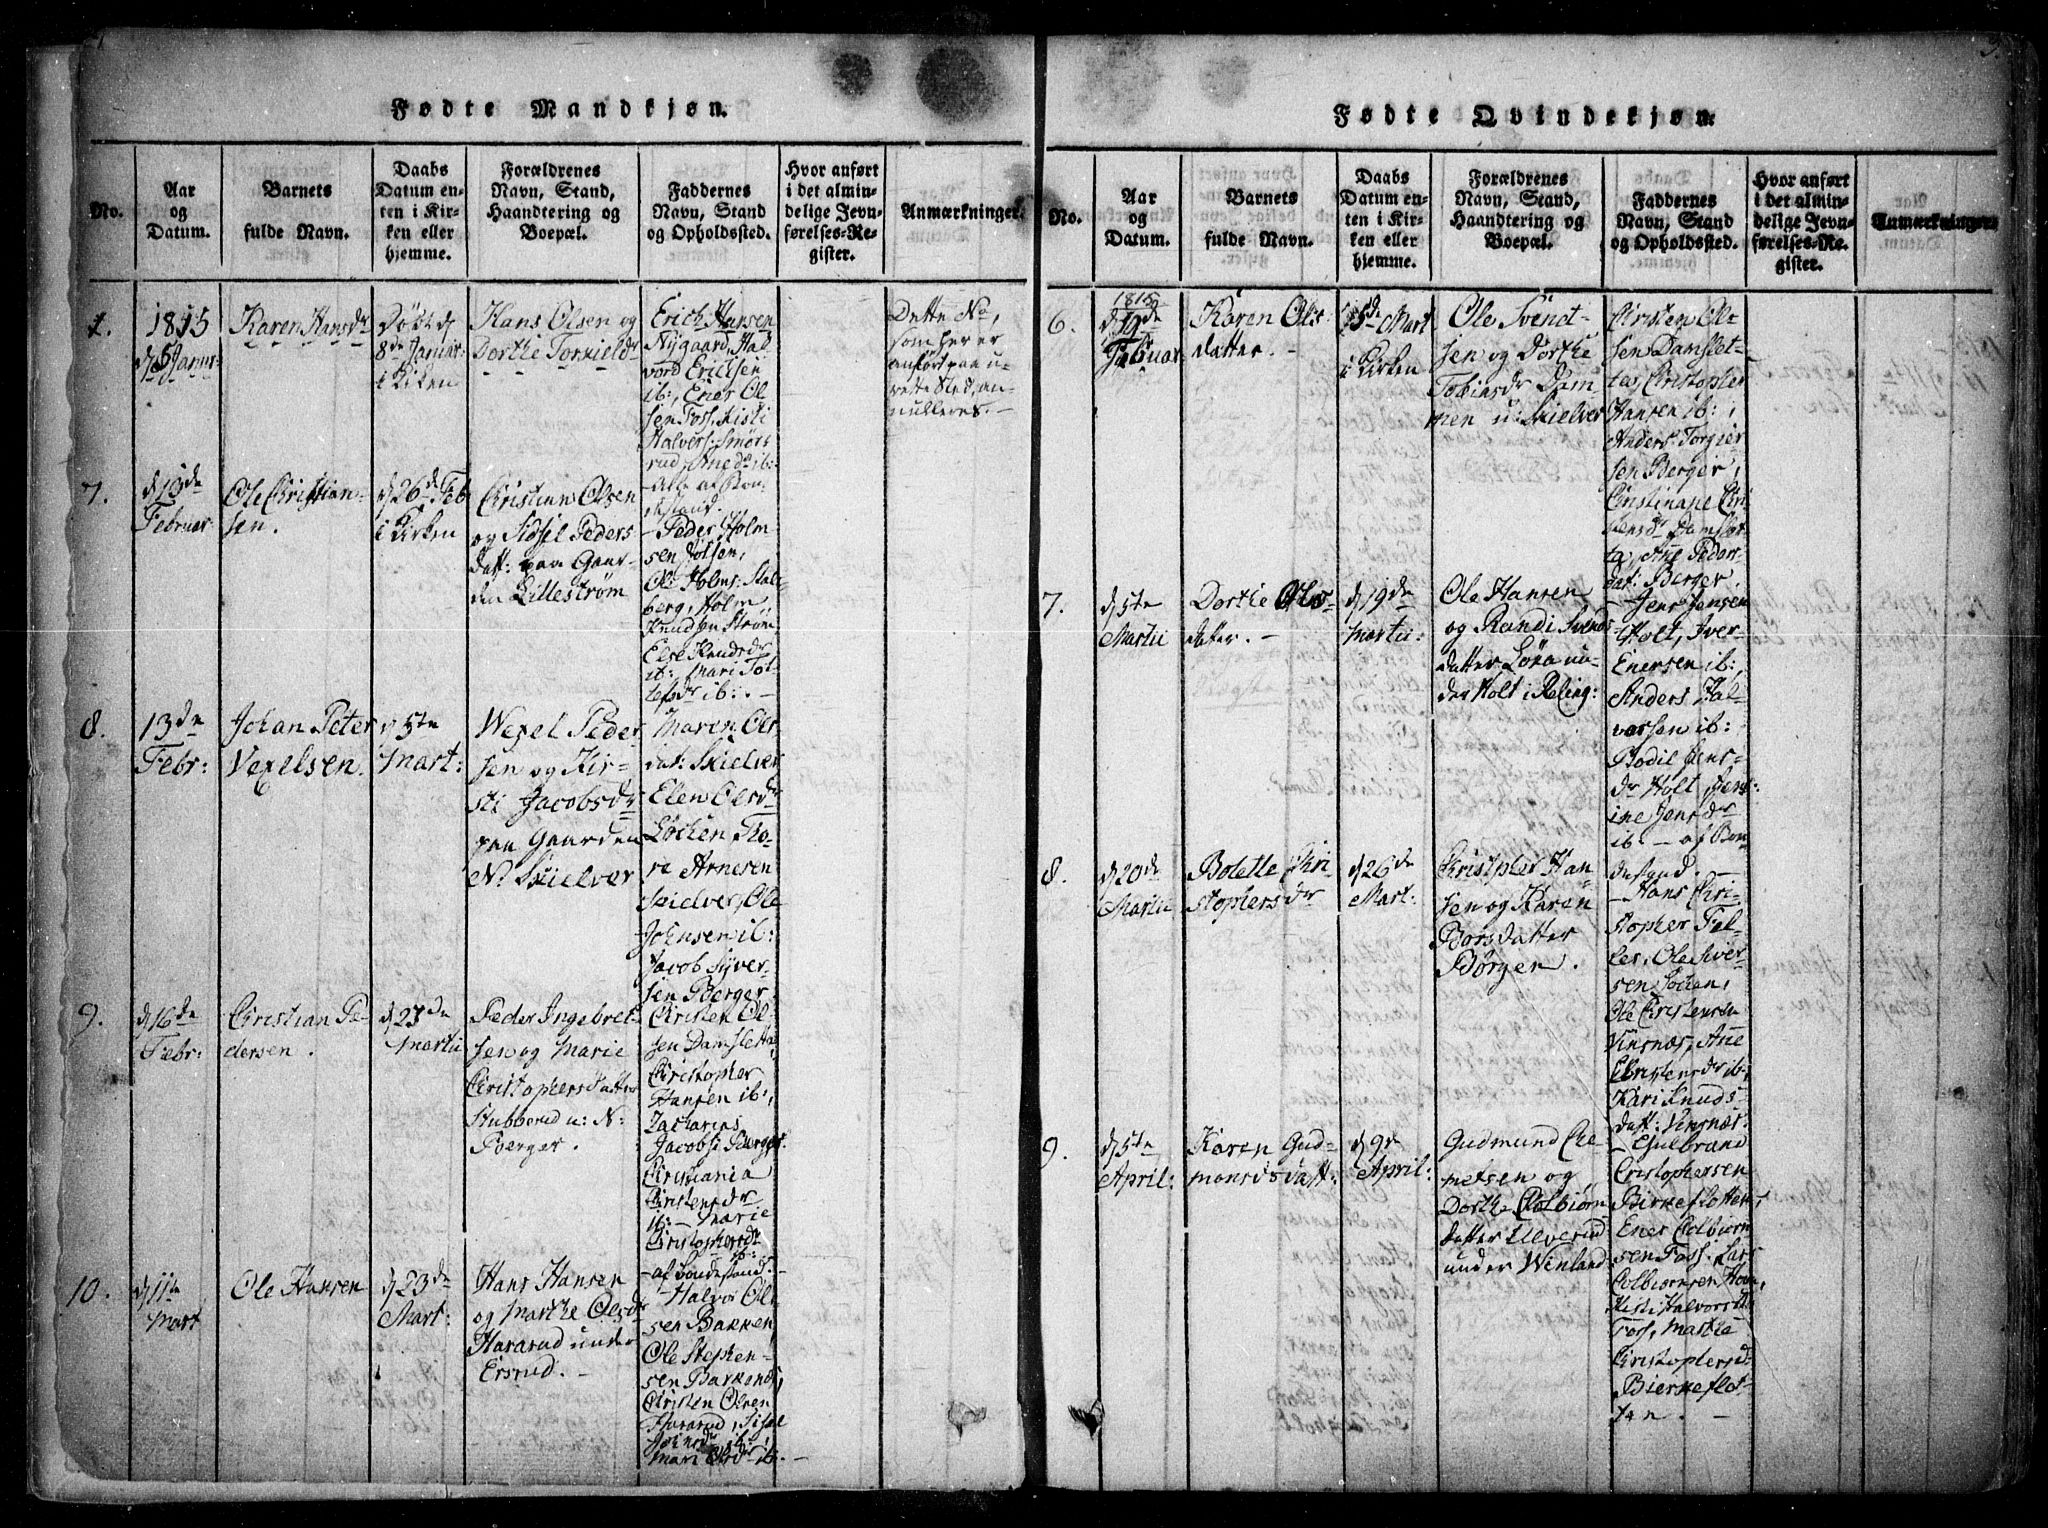 Fødte Mandkjøn.
No.
Aar
og
Datum.
Barnets
fulde Navn.
Daabs
Datum en-
ten i Kir-
ken eller
hjemme.
Forældrenes
Navn, Stand,
Haandtering og
Boepæl.
Faddernes
Navn, Stand
og Opholdssted.
Hvor anført
i det almin-
delige Jevn-
førelses-Re-
gister.
Anmærkninger.
1.
1815
d 5 Janu-
Karen Hansdr
Döbt d
8de Januar
i Kirken
Hans Olsen og
Dorthe Torkieldr
Erich Hansen
Nygaard, Hal
vord Ericksen
ib:, Ener Ol
sen Foss, Kisti
Halvers: Smörs
rud, Anne dr ib:
- Alle af Bon
destand.
Dette No,
som her er
anført paa u-
rette Sted, an-
nulleres. -
7.
d 13de
Februar
Ole Christian-
sen.
d 26de Feb
i Kirken
Christian Olsen
og Sidsel Peders
datt: paa Gaar-
den Lillestrøm
- Peder Holm
sen Jölsen,
Ole Holms: Stal-
berg, Holm
Knudsen Ström
Else Knudsdr
ib:, Mari Tol-
lefsdr ib: -
8.
13de
Febr:
Johan Peter
Vexelsen.
d 5te
Mart:
Wexel Peder
sen og Kir-
sti Jacobsdr
paa Gaarden
N: Skielver
Maren Ols-
dat: Skielver
Elen Olsdr
Löchen, Tho-
re Arnesen
Skielver, Ole
Johnsen ib:
Jacob Syver-
sen Berger
9.
d 16de
Febr:
Christian Pe-
dersen.
d 23de
Martii
Peder Ingebret-
sen og Marie
Christophersdatter
Stubberud u: N:
Berger.
Christen Ol-
sen Damsletta,
Christopher
Hansen ib:,
Zacharias
Jacobs: Berger
Christiania
Christensdr
ib: - Marie
Christophersdr
ib:
- af Bondestand. -
10.
d 11te
Mart
Ole Hansen
d 23de
Mart:
Hans Hansen
og Marthe Olsdr
Hararud under
Ersrud. -
- Halvor Ol-
sen Bakken,
Ole Stephen-
sen Bakken,
Christen Olsen
Hararud, Sisel
Johnsdr ib:,
Mari Olsdr ib: -
Fødte Qvindekjøn.
No.
Aar
og
Datum.
Barnets
fulde Navn.
Daabs
Datum en-
ten i Kir-
ken eller
hjemme.
Forældrenes
Navn, Stand,
Haandtering og
Boepæl.
Faddernes
Navn, Stand
og Opholdssted.
Hvor anført
i det almin-
delige Jevn-
førelses-Re-
gister.
Anmærkninger.
6.
1815
d 19de
Februar
Karen Ols-
datter. -
5de Mart
i Kirken
Ole Svend-
sen og Dorthe
Tobiasdr Dam-
men u: Skielver
Christen Ol-
sen Damslet-
ta, Christopher
Hansen ib:,
Anders Torgier
sen Berger,
Christiane Chri
stensdr Damslet-
ta, Ane Peders-
dat: Berger
7.
d 5te
Martii
Dorthe Ols-
datter. -
d 19de
Martii:
Ole Hansen
og Randi Svends-
datter Löxa un-
der Holt i Reling:
- Jens Jensen
Holt, Iver
Enersen ib:,
Anders Hal-
vorsen ib:
Bodil Jens-
dr Holt, Jens-
ine Jensdr
ib: - af Bon
destand. -
8.
d 20de
Martii
Bolette Chri
stophersdr
d 26de
Mart:
Christopher Han-
sen og Karen
Borsdatter
Börger.
- Hans Chri-
stopher Fel-
ler, Ole Siver-
sen Löken,
Ole Christensen
Vinsnæs, Ane
Christensdr ib:,
Kari Knuds-
datt: Vinsnæs.
9.
d 5te
April:
Karen Gud-
mundsdatt:
d 9de
April:
Gudmund Cle-
metsen og
Dorthe Colbiörn-
datter Ulverud
under Winland
- Gulbrand
Christophersen
Birkeflotten,
Ener Colbiörn
sen Foss, Lars
Colbiörnsen Hovn,
Kisti Halvorsdr
Foss, Marthe
Christophersdr
Bierkeflot-
ten. -